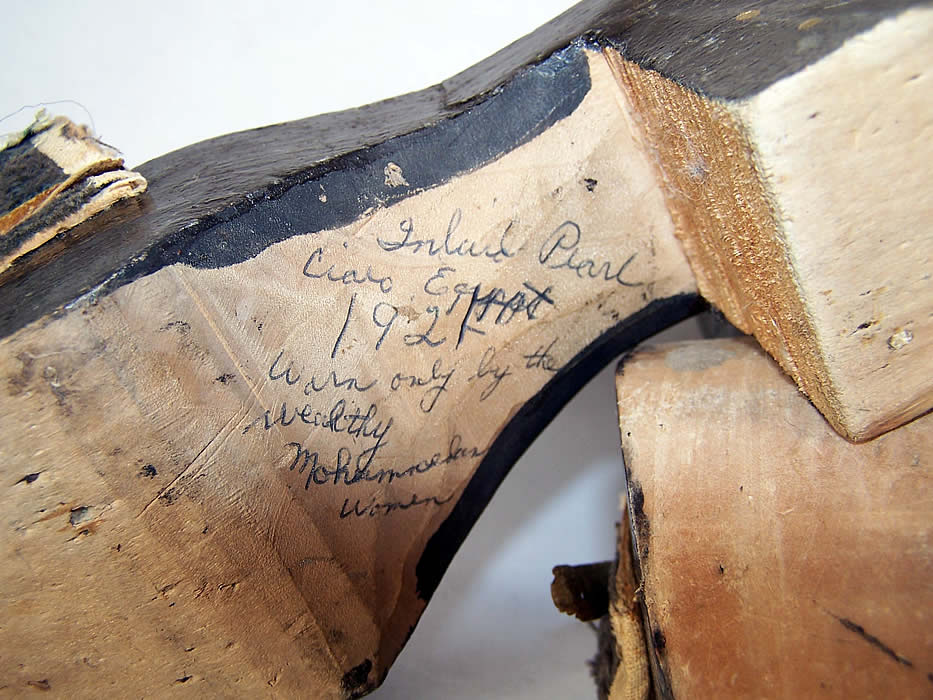 Inlaid Pearl
Ciaro Egypt
1921
Warn only by the
wealthy
Mohammedan
women